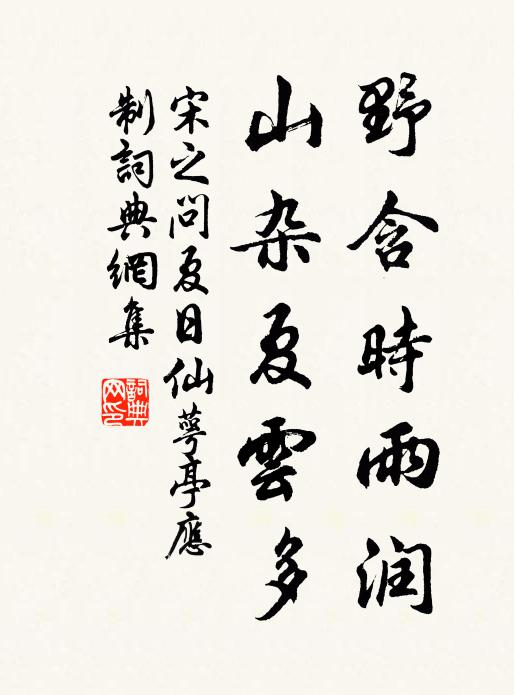 野含時雨润
山杂夏雲多
宋之问夏日仙萼亭應
制詞典網集
詞典网印